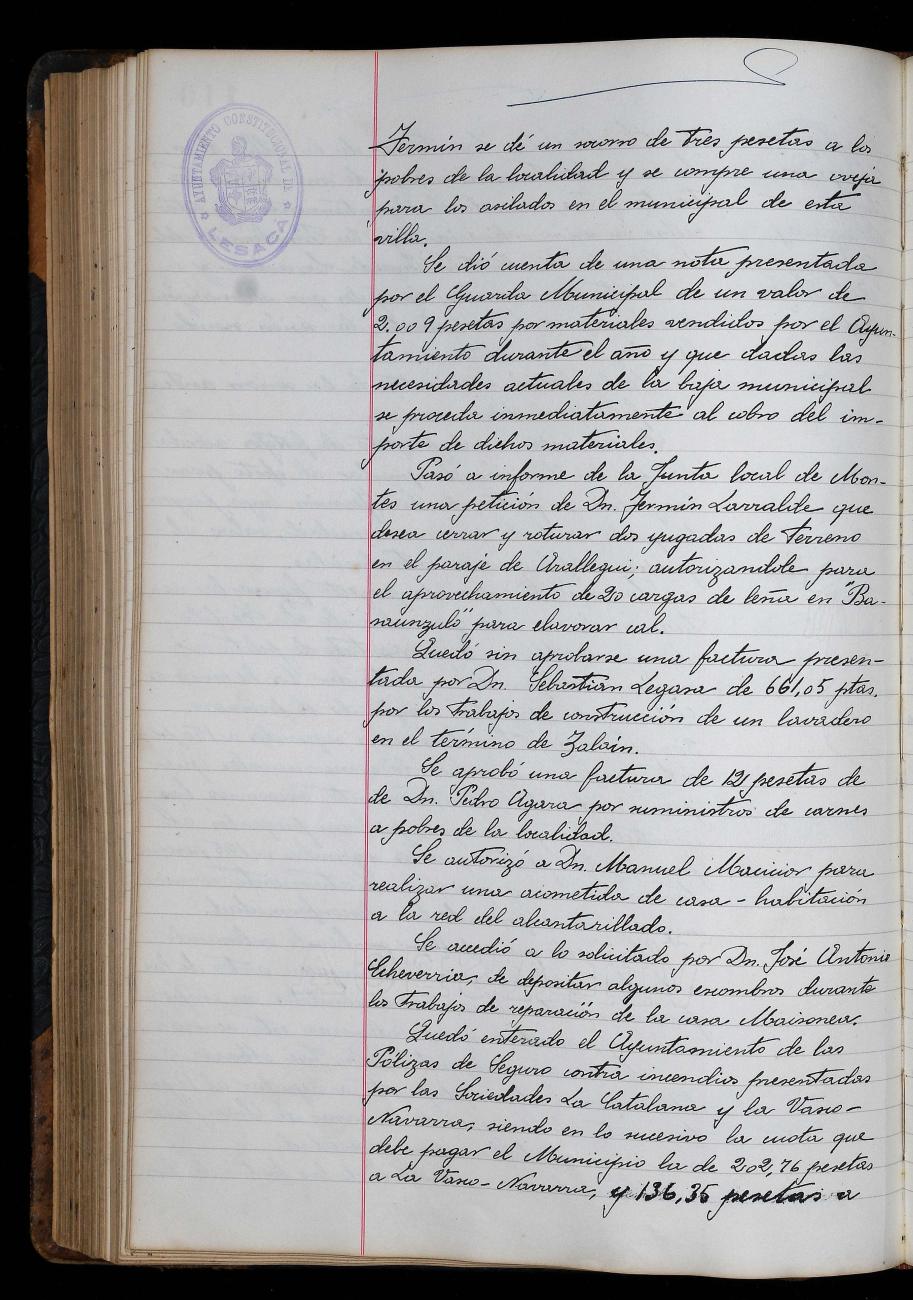 AYUNTAMIENTO CONSTITUCIONAL DE
LESACA
Fermín se dé un socorro de tres pesetas a los
pobres de la localidad y se compre una oveja
para los asilados en el municipal de esta
villa.
Se dió cuenta de una nota presentada
por el Guarda Municipal de un valor de
2.009 pesetas por materiales vendidos por el Ayun-
tamiento durante el año y que dadas las
necesidades actuales de la baja municipal
se proceda inmediatamente al cobro del im-
porte de dichos materiales.
Pasó a informe de la Junta local de Mon-
tes una petición de Dn. Fermín Larralde que
desea cerrar y roturar dos yugadas de terreno
en el paraje de Arallegui; autorizandole para
el aprovechamiento de 20 cargas de leña en "Ba-
saunzulo" para elavorar cal.
Quedó sin aprobarse una factura presen-
tada por Dn. Sebastian Legasa de 661,05 ptas.
por los trabajos de construcción de un lavadero
en el término de Zalain.
Se aprobó una factura de 121 pesetas de
de Dn. Pedro Agara por suministros de carnes
a pobres de la localidad.
Se autorizó a Dn. Manuel Macicior para
realizar una acometida de casa-habitación
a la red del alcantarillado.
Se accedió a lo solicitado por Dn. José Antonio
Echeverria, de depositar algunos escombros durante
los trabajos de reparación de la casa Maisonea.
Quedó enterado el Ayuntamiento de las
Pólizas de Seguro contra incendios presentadas
por las Sociedades La Catalana y la Vasco-
Navarra, siendo en lo sucesivo la cuota que
debe pagar el Municipio la de 202,76 pesetas
a La Vasco-Navarra, y 136,35 pesetas a